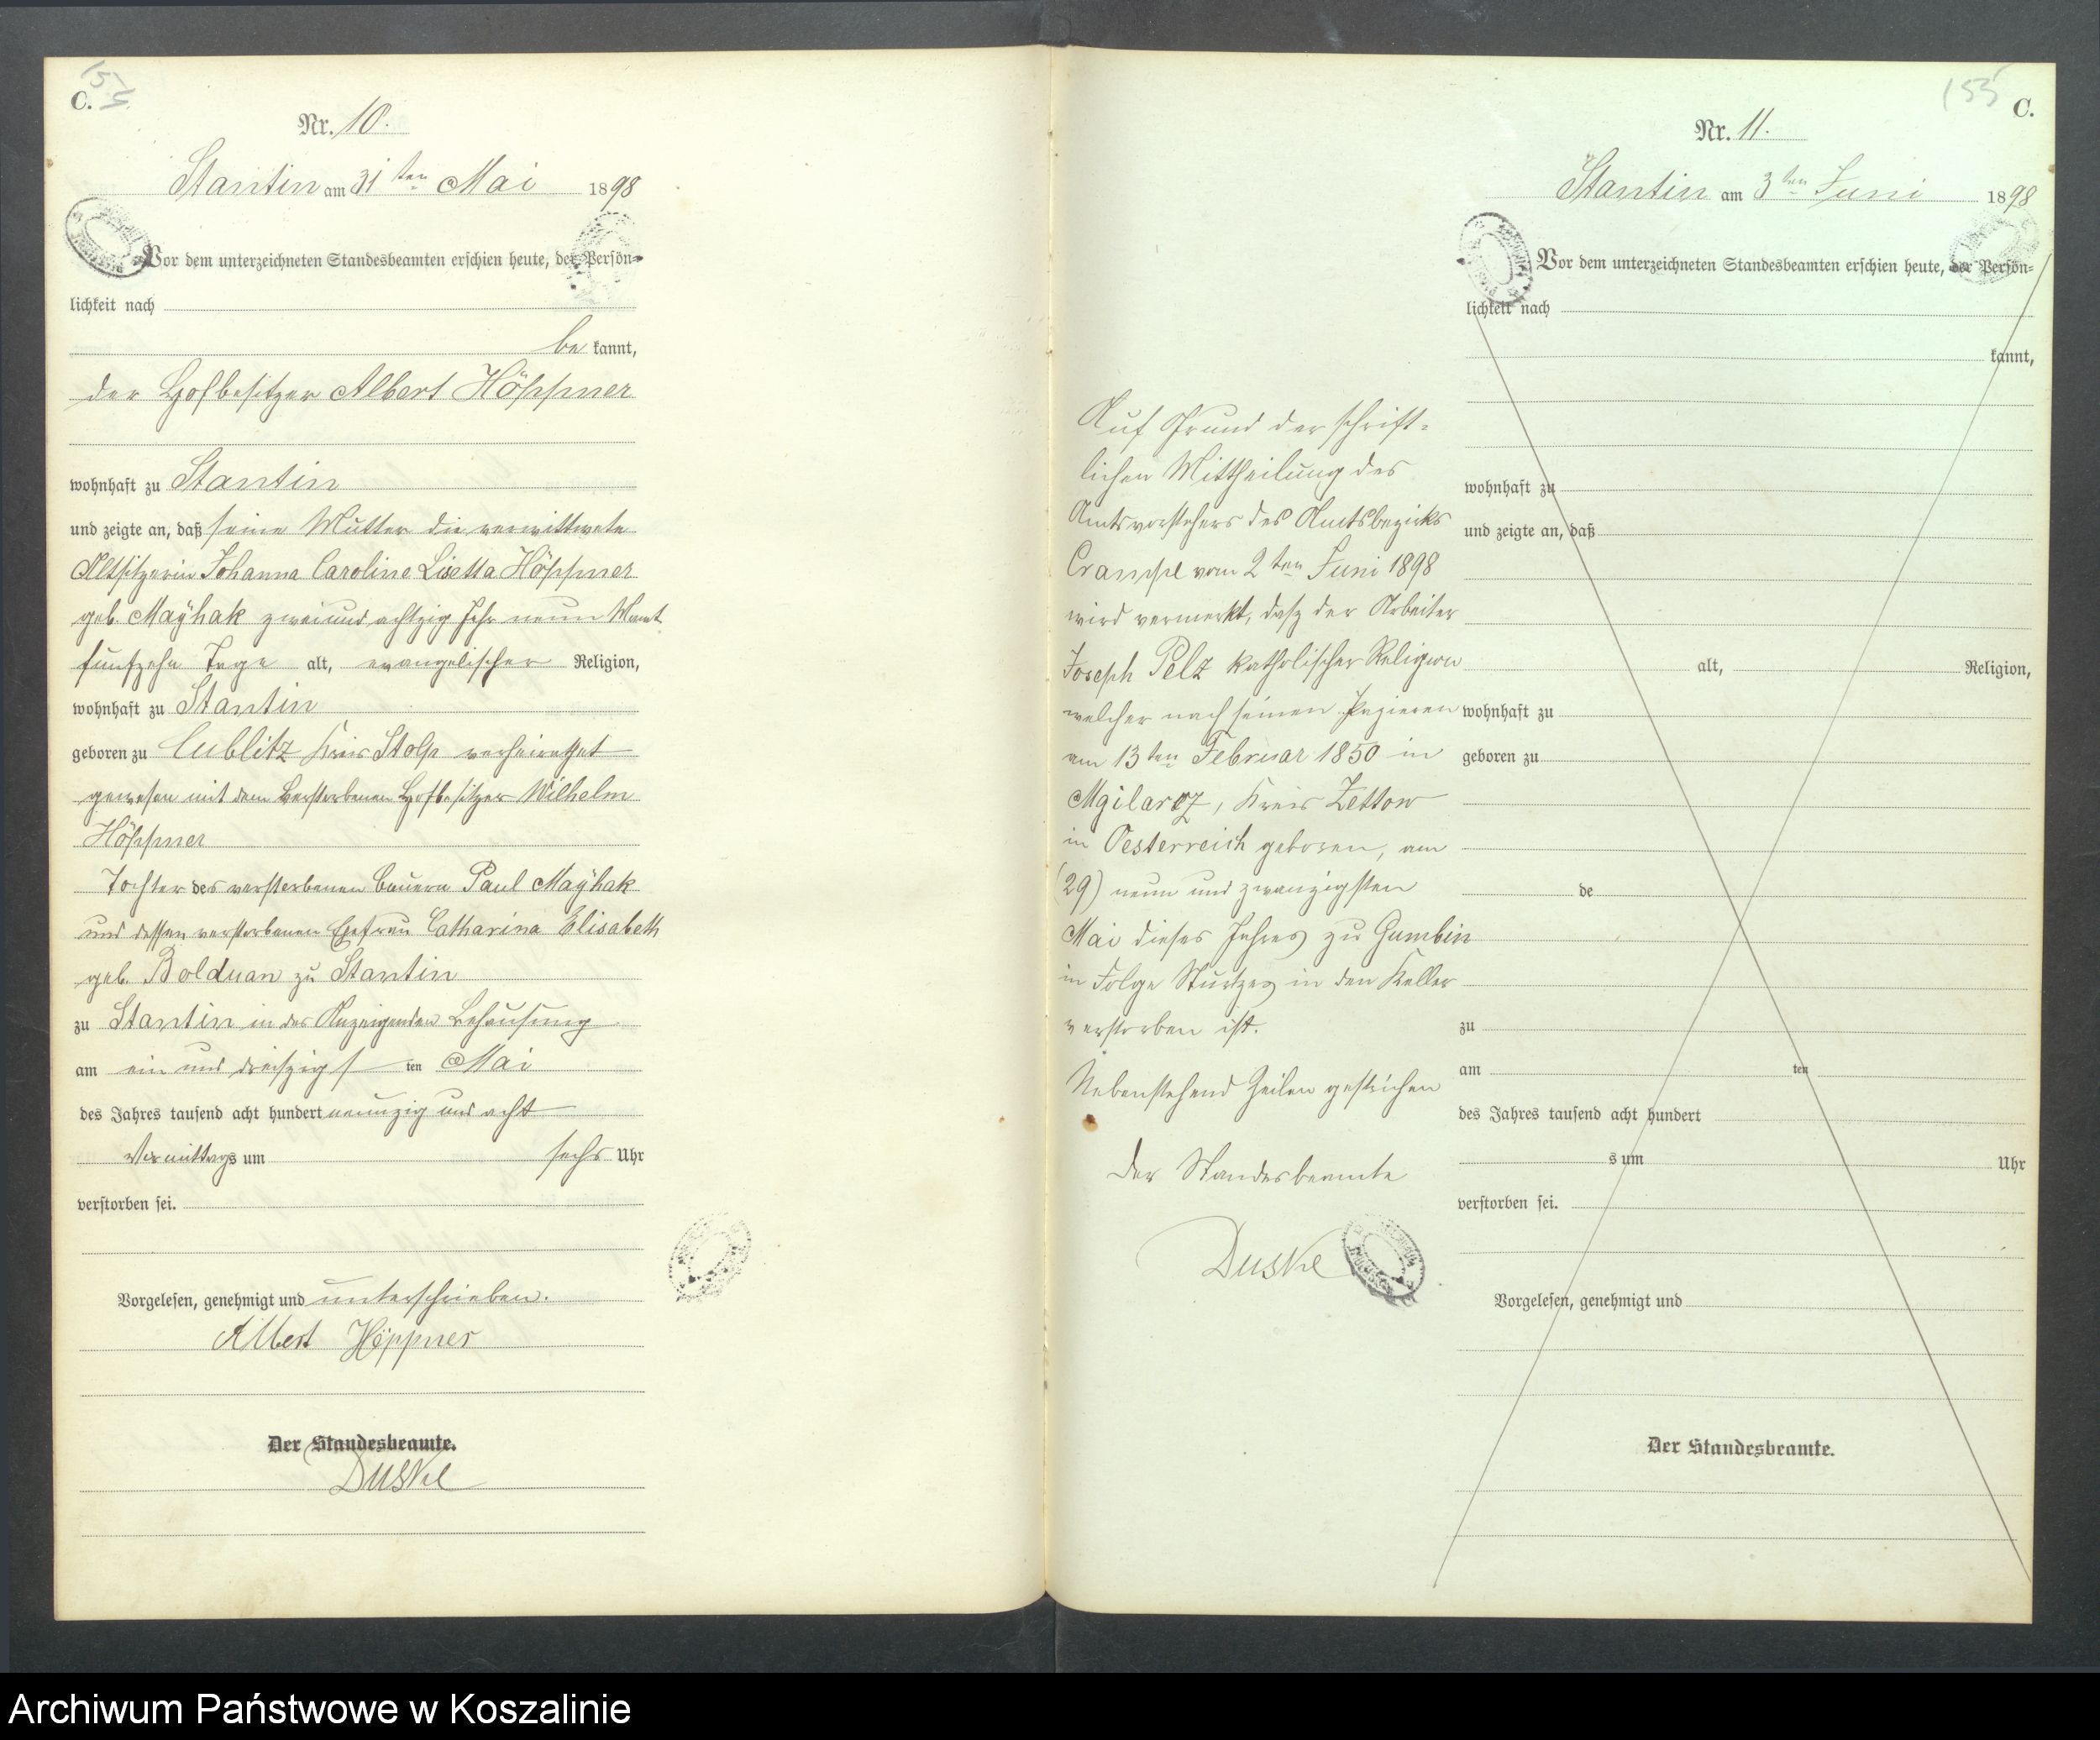 C.
Nr. 10.
Stantin am 31ten Mai 1898
Vor dem unterzeichneten Standesbeamten erschien heute, der Persön-
lichkeit nach
be kannt,
der Hofbesitzer Albert Höppner
wohnhaft zu Stantin
und zeigte an, daß seine Mutter die verwittwete
Altsitzerin Johanna Caroline Lisetta Höppner
geb. Mayhak zweiundachtzig Jahr neun Monat
fünfzehn Tage alt, evangelischer Religion,
wohnhaft zu Stantin
geboren zu Cublitz Kreis Stolp verheirathet
gewesen mit dem verstorbenen Hofbesitzer Wilhelm
Höppner
Tochter des verstorbenen Bauern Paul Mayhak
und dessen verstorbenen Ehefrau Catharina Elisabeth
geb. Bolduan zu Stantin
zu Stantin in des Anzeigenden Behausung
am ein und dreißigsten Mai
des Jahres tausend acht hundert neunzig und acht
Vormittags um sechs Uhr
verstorben sei.
Vorgelesen, genehmigt und unterschrieben.
Albert Höppner
Der Standesbeamte.
Duske
155 C.
Nr. 11.
Stantin am 3ten Juni 1898
Vor dem unterzeichneten Standesbeamten erschien heute, der Persön-
lichkeit nach
kannt,
wohnhaft zu
und zeigte an, daß
alt, Religion,
wohnhaft zu
geboren zu
de
zu
am ten
des Jahres tausend acht hundert
s um Uhr
verstorben sei.
Vorgelesen, genehmigt und
Der Standesbeamte.
Auf Grund der schrift-
lichen Mittheilung des
Amtsvorstehers des Amtsbezirks
Crampe vom 2ten Juni 1898
wird vermerkt, dasz der Arbeiter
Joseph Pelz katholischer Religion
welcher nach seinen Papieren
am 13ten Februar 1850 in
Kreis Zettow
in Oesterreich geboren, am
(29) neun und zwanzigsten
Mai dieses Jahres zu Gumbin
in Folge Sturzes in den Keller
verstorben ist.
Nebenstehend Zeilen gestrichen
Der Standesbeamte
Duske
Archiwum Państwowe w Koszalinie